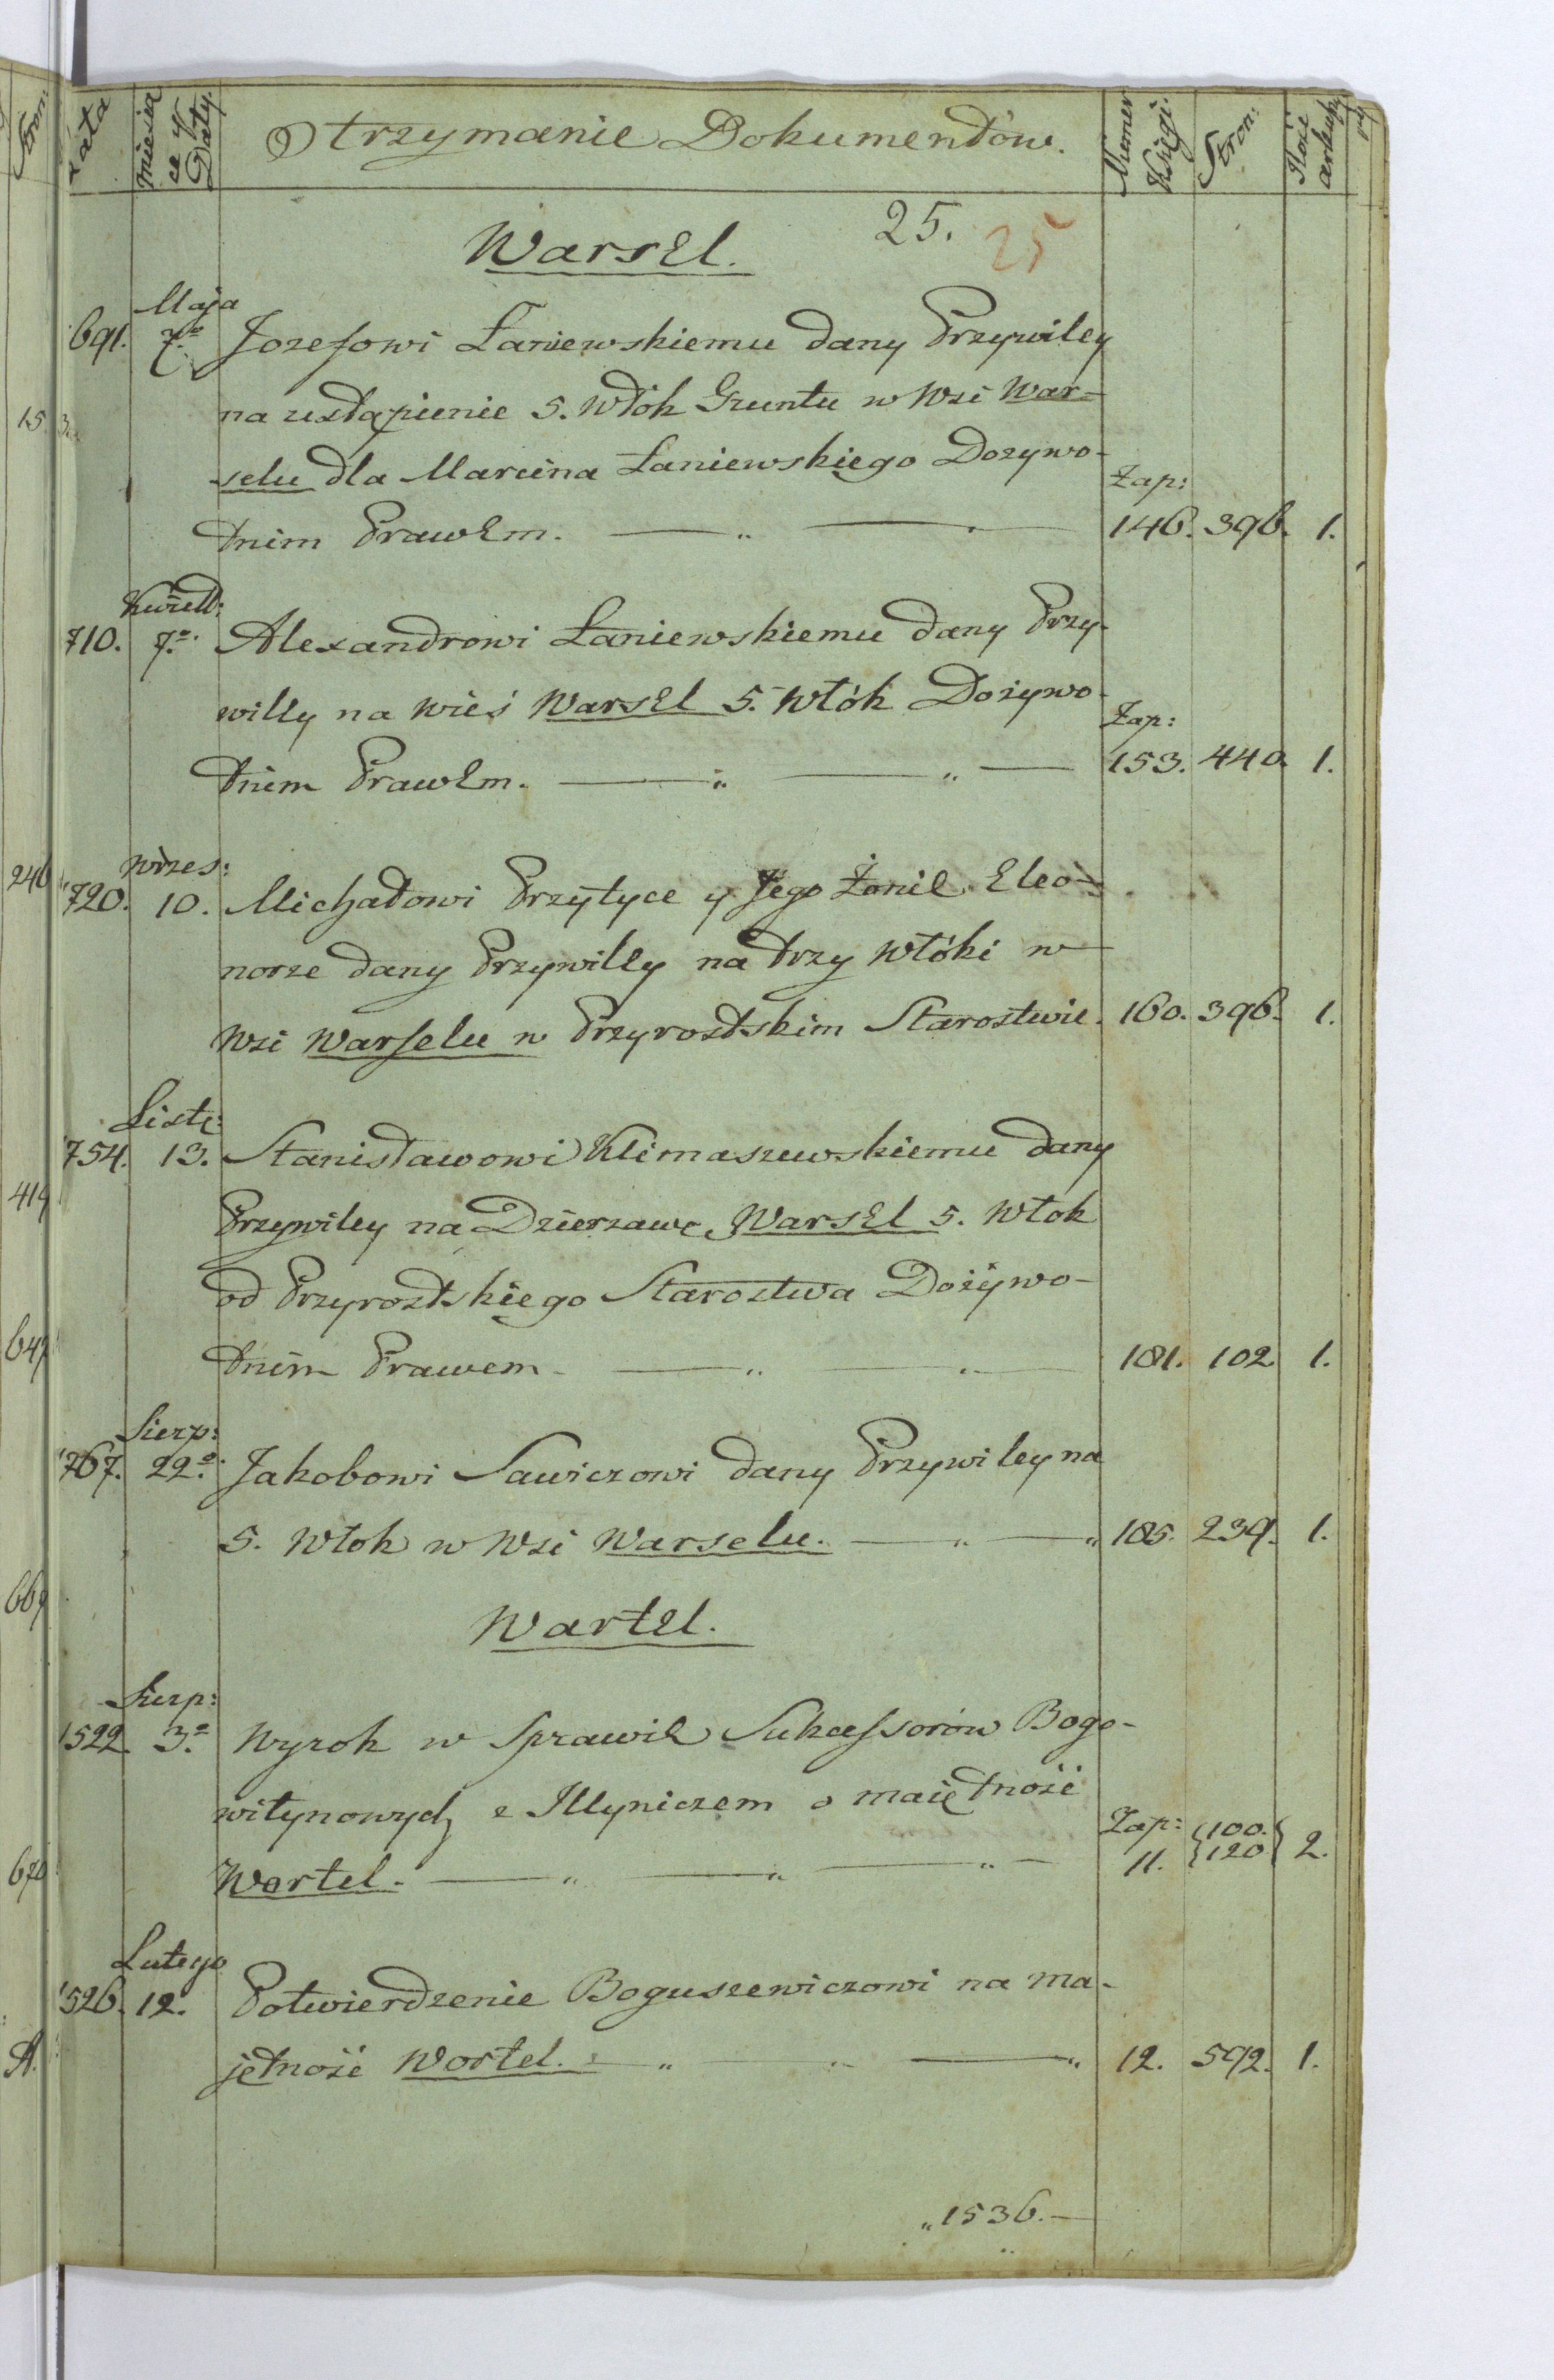 Lata miesiące y Daty. Otrzymanie Dokumentów. Numer Księgi. Stron: Ilość arkuszy
25. 25
Warsel.
Maja
691. 7º Jozefowi Łaniewskiemu dany Przywiley
na ustąpienie 5. Włók Gruntu w Wsi War-
selu dla Marcina Łaniewskiego Dozywo-
Zap:
tnim Prawem. 146. 396. 1.
Kwiet:
710. 7º Alexandrowi Łaniewskiemu dany Przy-
willy na Wieś Warsel 5. Włók Dożywo-
Zap:
tniem Prawem. 153. 440. 1.
Wrzes:
720. 10. Michałowi Przytyce y Jego Żonie Eleo-
norze dany Przywilly na trzy Włóki w
Wsi Warselu w Przyrostskim Starostwie. 160. 396. 1.
List:
754. 13. Stanisławowi Klimaszewskiemu dany
Przywiley na Dzierzawę Warsel 5. Włok
od Przyrostskiego Starostwa Dożywo-
tnim Prawem. 181. 102. 1.
Sierp:
767. 22º Jakobowi Sawiczowi dany Przywiley na
5. Włok w Wsi Warselu. 185. 239. 1.
Wartel.
Sierp:
1522. 3º Wyrok w Sprawie Sukcessorów Bogo-
witynowych z Illyniczem o maiętność
Zap: 100.
Wortel. 11. 120 2.
Lutego
1526. 12. Potwierdzenie Boguszewiczowi na ma-
jętność Wortel. 12. 592. 1.
1536.